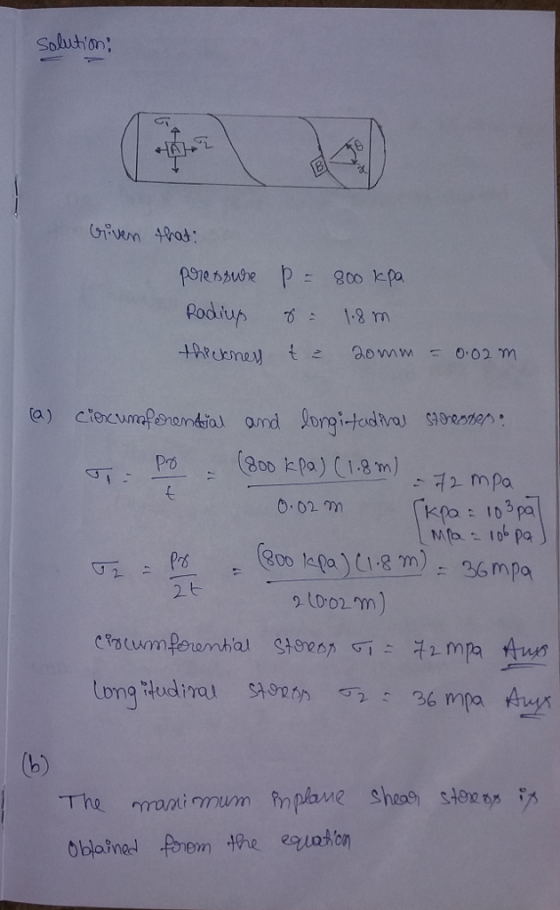 Solution:
σ1
σ2
A
B
θ
x
Given that:
pressure p = 800 kpa
Radius r = 1.8 m
thickness t = 20mm = 0.02 m
(a) circumferential and longitudinal stresses:
σ1 = pr/t = (800 kpa)(1.8m)/0.02 m = 72 mpa
[kpa = 10³pa
mpa = 10⁶ pa]
σ2 = pr/2t = (800 kpa)(1.8 m)/2(0.02 m) = 36mpa
circumferential stress σ1 = 72 mpa Ans
longitudinal stress σ2 = 36 mpa Ans
(b)
The maximum inplane shear stress is
obtained from the equation